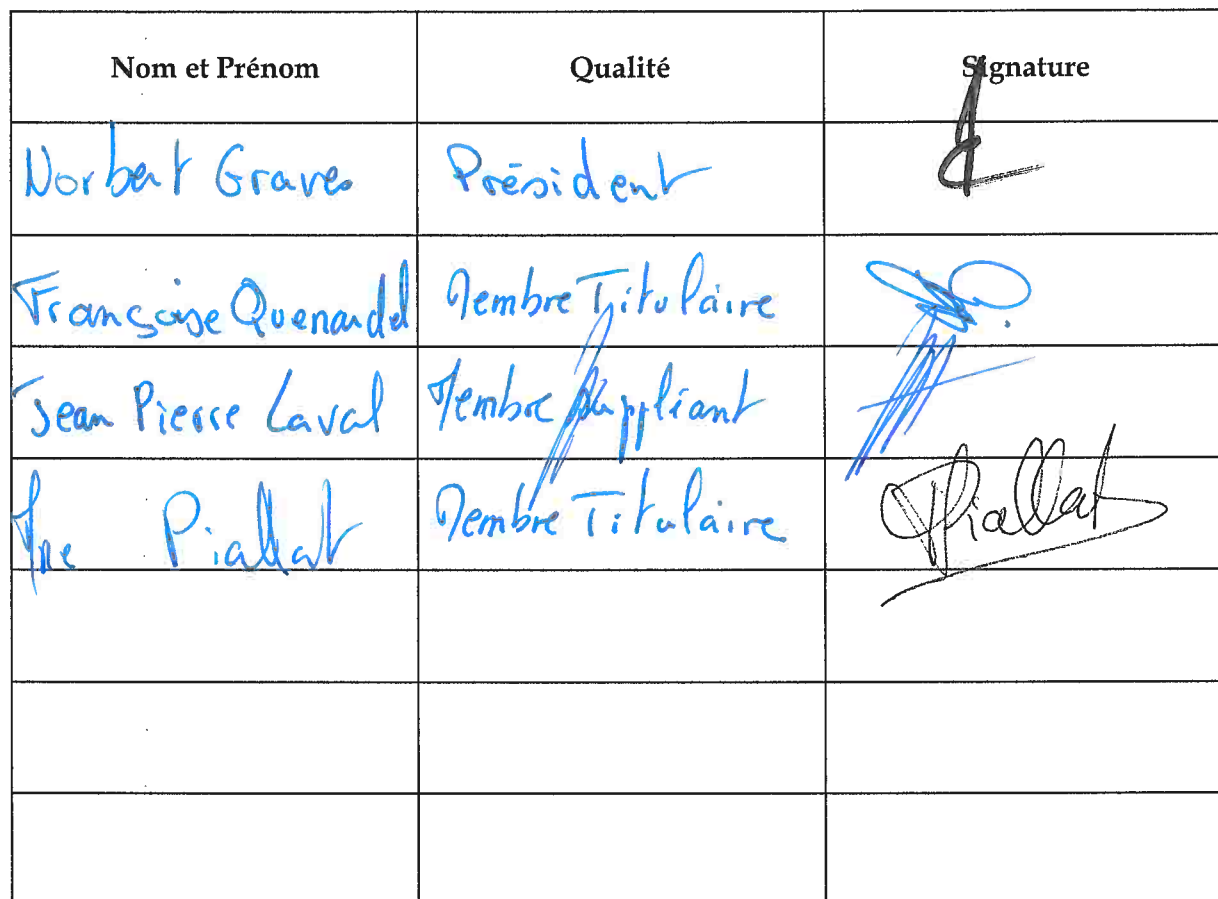 Nom et Prénom Qualité Signature
Norbert Graves Président
Françoise Quenardel Membre Titulaire
Jean Pierre Laval Membre Suppliant
Piallat Membre Titulaire Piallat